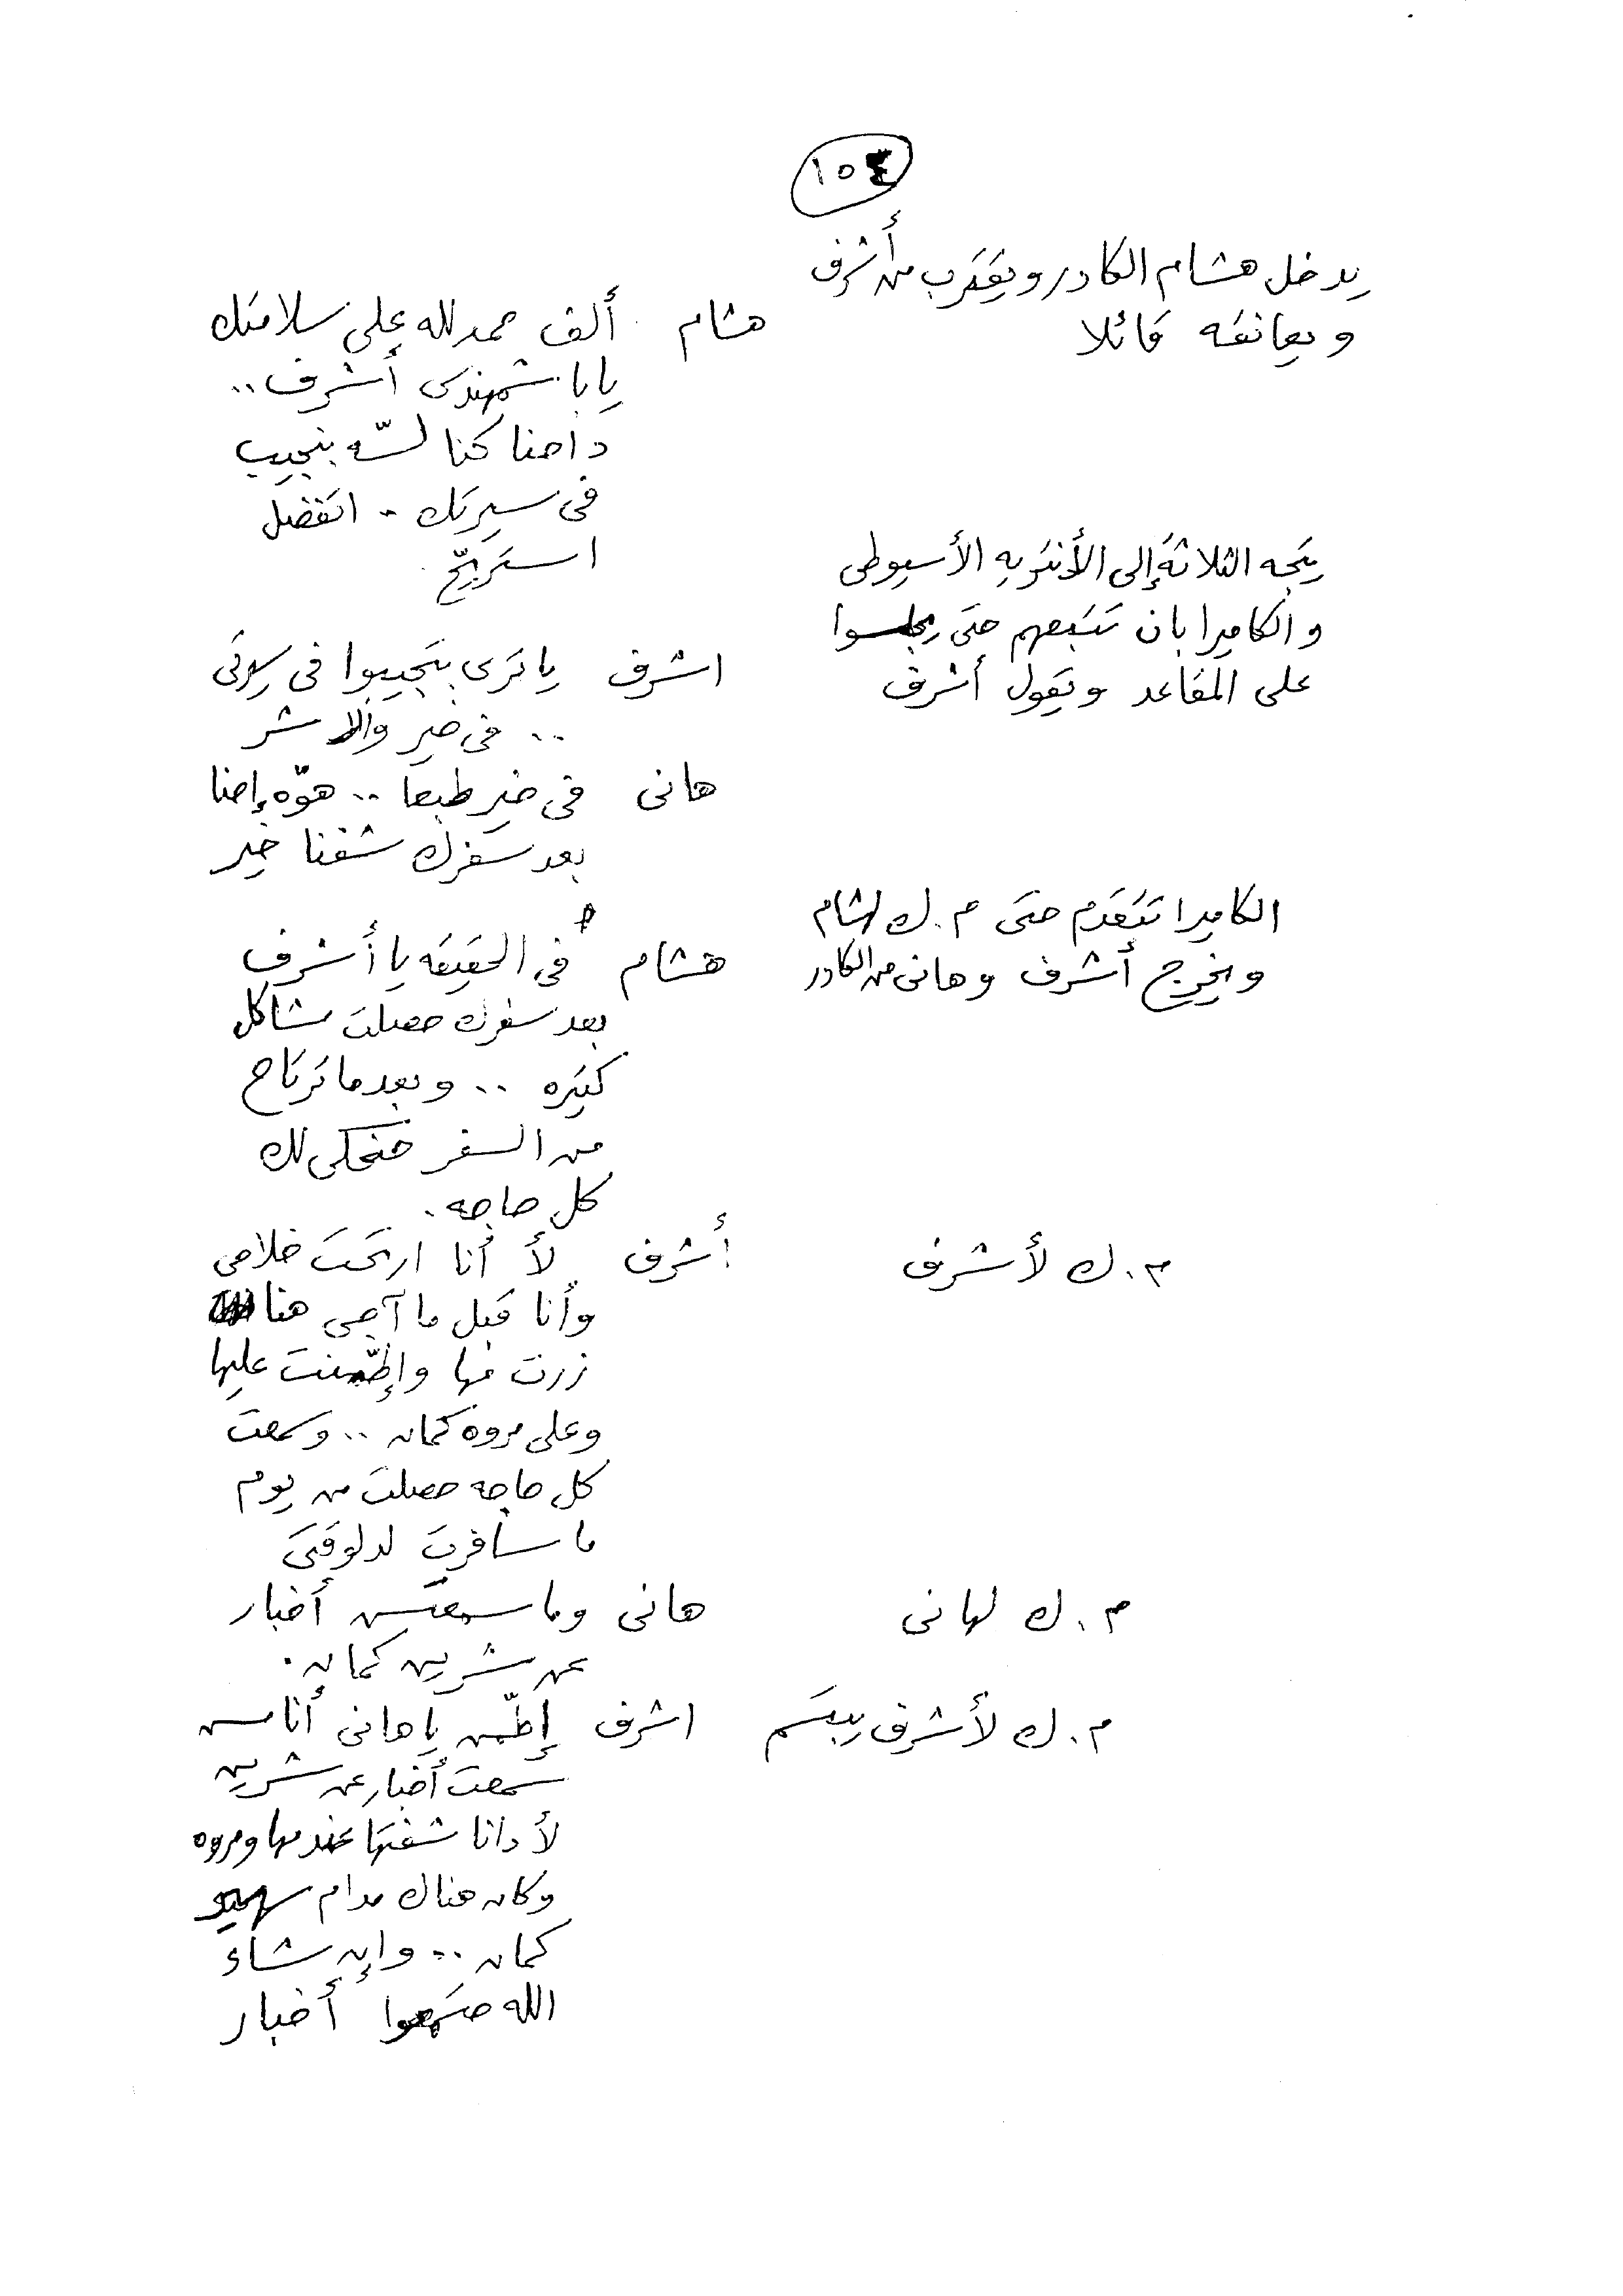 ١٥٤
يدخل هشام الكادر ويقترب من أشرف
ويعانقه قائلا
هشام ألف حمد لله على سلامتك
يا باشمهندس أشرف ..
دا احنا كنا لسّه بنجيب
فى سيرتك . اتفضل
استريّح .
يتجه الثلاثة إلى الأنتريه الأسيوطى
والكاميرا بان تتبعهم حتى يجلسوا
على المقاعد ويقول أشرف
اشرف يا ترى بتجيبوا فى سيرتى
.. فى خير والا شر
هانى فى خير طبعا .. هوّه إحنا
بعد سفرك شفنا خير
الكاميرا تتقدم حتى م . ك لهشام
ويخرج أشرف وهانى من الكادر
هشام فى الحقيقه يا أشرف
بعد سفرك حصلت مشاكل
كتيره .. وبعد ما ترتاح
من السفر حنحكى لك
كل حاجه .
م . ك لأشرف
أشرف لأ أنا ارتحت خلاص
وأنا قبل ما آجى هنا
زرت مها وإطّمنت عليها
وعلى مروه كمان .. وسمعت
كل حاجه حصلت من يوم
ما سافرت لدلوقتى
م . ك لهانى
هانى وما سمعتش أخبار
عن شرين كمان .
م . ك لأشرف يبتسم
اشرف إطّمن يا هانى أنا مش
سمعت أخبار عن شرين
لأ دانا شفتها عند مها ومروه
وكان هناك مدام سهير
كمان .. وإن شاء
الله حتسمعوا أخبار